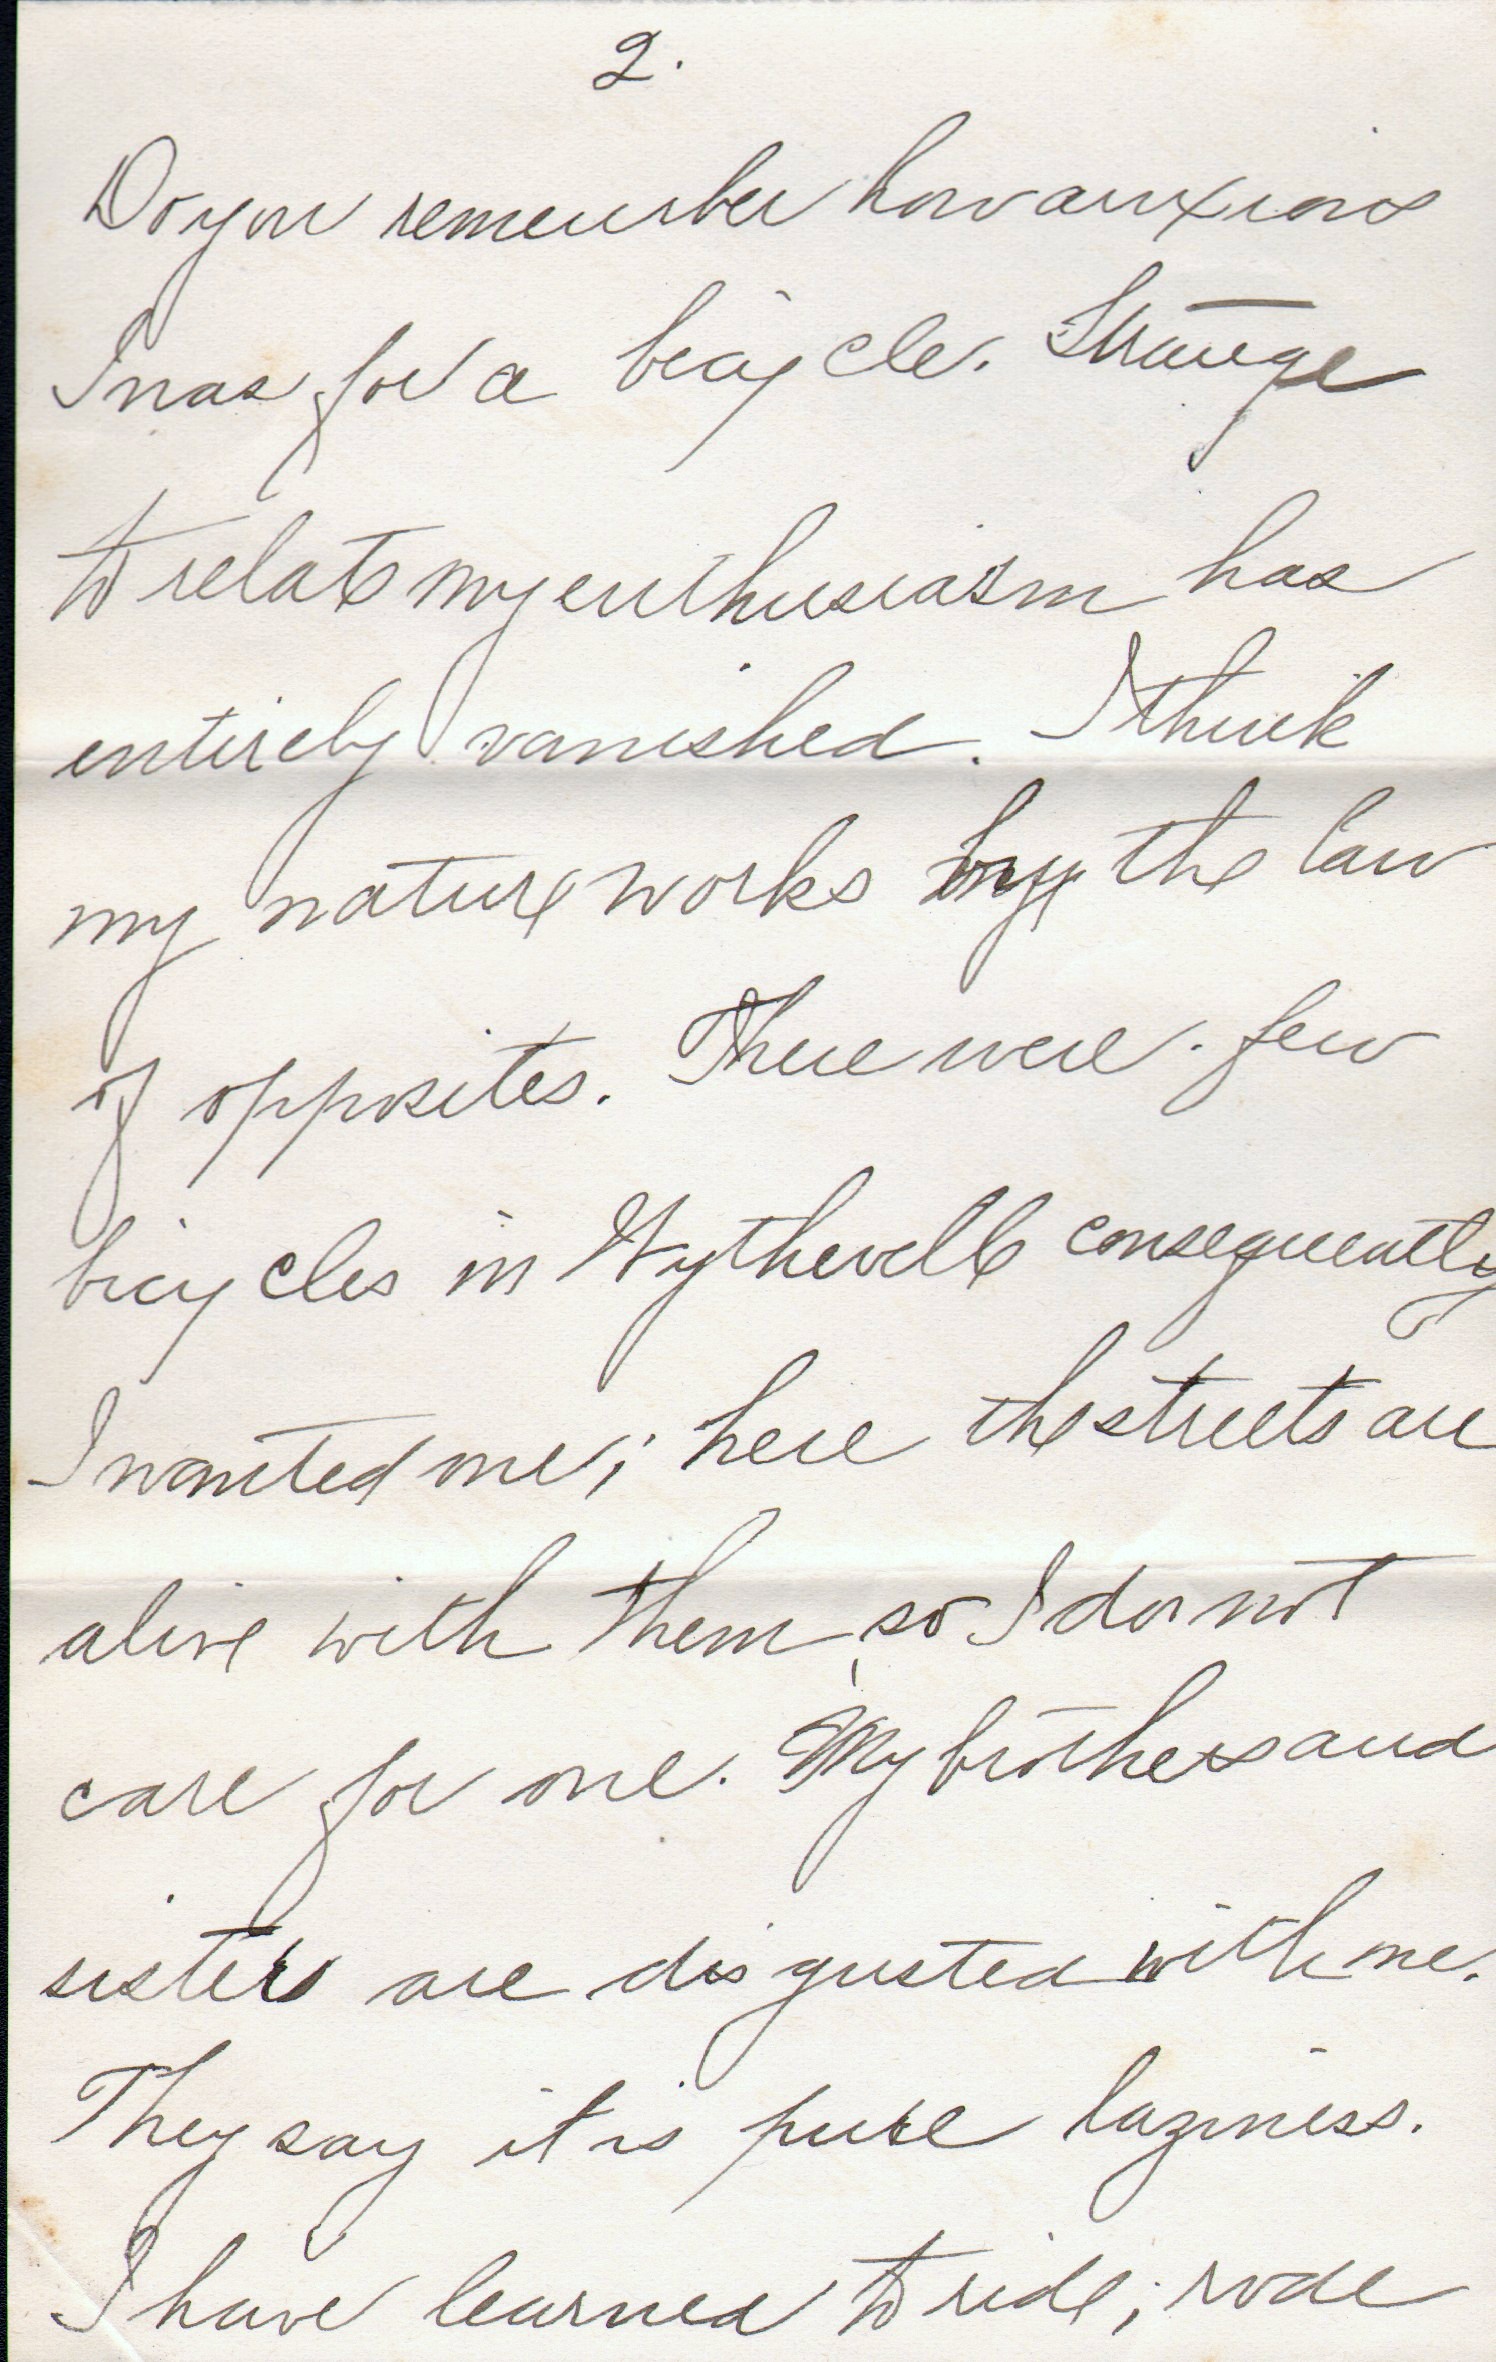 2.
Do you remember how anxious
I was for a bicycle. Strange
to relate my enthusiasm has
entirely vanished. I think
my nature works by the law
of opposites. There were few
bicycles in Wytheville consequently
I wanted one; here the streets are
alive with them, so I do not
care for one. My brothers and
sisters are disgusted with me.
They say it is pure laziness.
I have learned to ride; rode